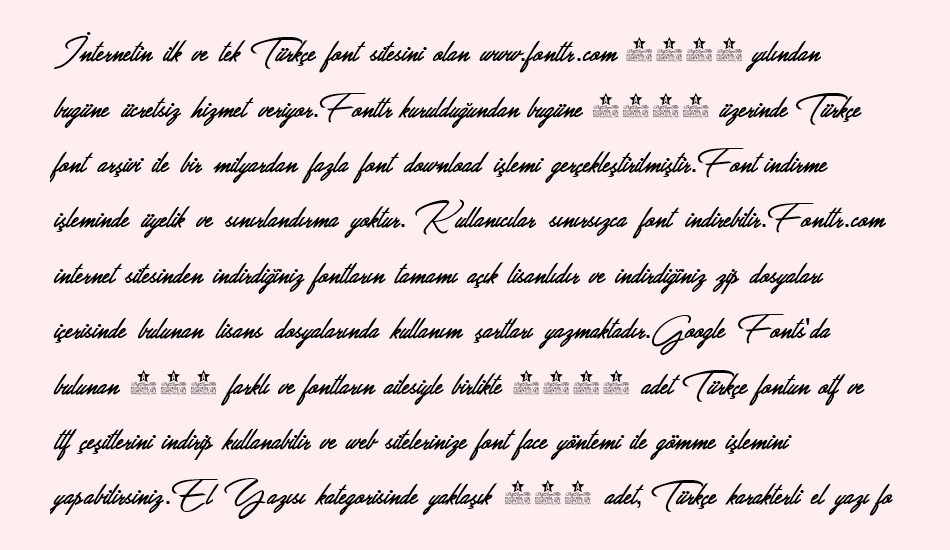 İnternetin ilk ve tek Türkçe font sitesini olan www.fonttr.com yılından
bugüne ücretsiz hizmet veriyor.Fonttr kurulduğundan bugüne üzerinde Türkçe
font arşivi ile bir milyardan fazla font download işlemi gerçekleştirilmiştir.Font indirme
işleminde üyelik ve sınırlandırma yoktur. Kullanıcılar sınırsızca font indirebilir.Fonttr.com
internet sitesinden indirdiğiniz fontların tamamı açık lisanlıdır ve indirdiğiniz zip dosyaları
içerisinde bulunan lisans dosyalarında kullanım şartları yazmaktadır.Google Fonts'da
bulunan farklı ve fontların ailesiyle birlikte adet Türkçe fontun otf ve
ttf çeşitlerini indirip kullanabilir ve web sitelerinize font face yöntemi ile gömme işlemini
yapabilirsiniz.El Yazısı kategorisinde yaklaşık adet, Türkçe karakterli el yazı fo